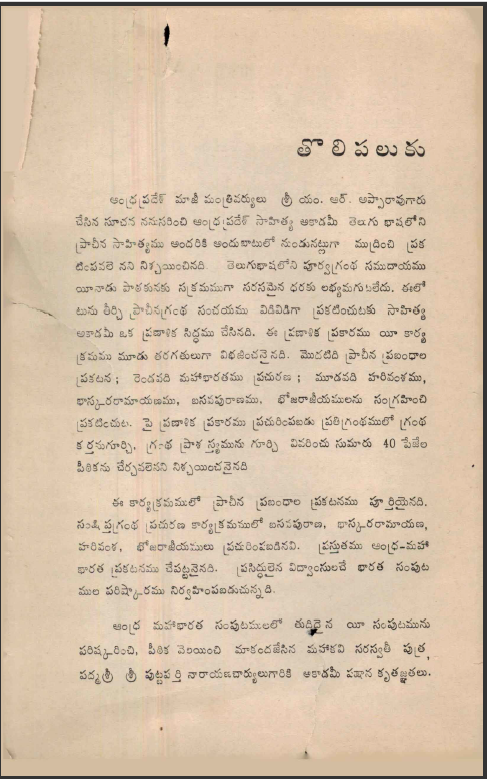 తొలిపలుకు
ఆంధ్రప్రదేశ్ మాజీ మంత్రివర్యులు శ్రీ యం. ఆర్. అప్పారావుగారు
చేసిన సూచన ననుసరించి ఆంధ్రప్రదేశ్ సాహిత్య అకాడమీ తెలుగు భాషలోని
ప్రాచీన సాహిత్యము అందరికి అందుబాటులో నుండునట్లుగా ముద్రించి ప్రక
టింపవలె నని నిశ్చయించినది. తెలుగుభాషలోని పూర్వగ్రంథ సముదాయము
యీనాడు పాఠకునకు సక్రమముగా సరసమైన ధరకు లభ్యమగుటలేదు. ఈలో
టును తీర్చి ప్రాచీనగ్రంథ సంచయము విడివిడిగా ప్రకటించుటకు సాహిత్య
అకాడమీ ఒక ప్రణాళిక సిద్ధము చేసినది. ఈ ప్రణాళిక ప్రకారము యీ కార్య
క్రమము మూడు తరగతులుగా విభజించనైనది. మొదటిది ప్రాచీన ప్రబంధాల
ప్రకటన ; రెండవది మహాభారతము ప్రచురణ ; మూడవది హరివంశము,
భాస్కరరామాయణము, బసవపురాణము, భోజరాజీయములను సంగ్రహించి
ప్రకటించుట. పై ప్రణాళిక ప్రకారము ప్రచురింపబడు ప్రతిగ్రంథములో గ్రంథ
కర్తనుగూర్చి, గ్రంథ ప్రాశస్త్యమును గూర్చి వివరించు సుమారు 40 పేజీల
పీఠికను చేర్చవలెనని నిశ్చయించనైనది
ఈ కార్యక్రమములో ప్రాచీన ప్రబంధాల ప్రకటనము పూర్తియైనది.
సంక్షిప్తగ్రంథ ప్రచురణ కార్యక్రమములో బసవపురాణ, భాస్కరరామాయణ,
హరివంశ, భోజరాజీయములు ప్రచురింపబడినవి. ప్రస్తుతము ఆంధ్ర-మహా
భారత ప్రకటనము చేపట్టనైనది. ప్రసిద్ధులైన విద్వాంసులచే భారత సంపుట
ముల పరిష్కారము నిర్వహింపబడుచున్నది.
ఆంధ్ర మహాభారత సంపుటములలో తుదిదైన యీ సంపుటమును
పరిష్కరించి, పీఠిక వెలయించి మాకందజేసిన మహాకవి సరస్వతీ పుత్ర,
పద్మశ్రీ శ్రీ పుట్టపర్తి నారాయణచార్యులుగారికి అకాడమీ పక్షాన కృతజ్ఞతలు.